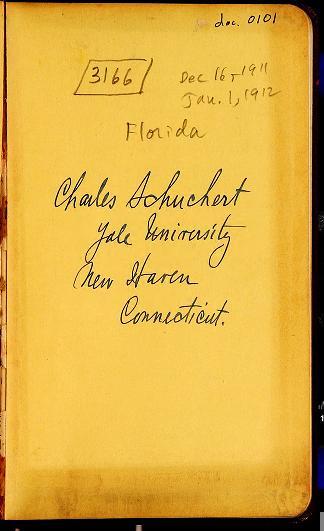 doc. 0101
3166
Dec 16 - 1911
Jan. 1, 1912
Florida
Charles Schuchert
Yale University
New Haven
Connecticut.